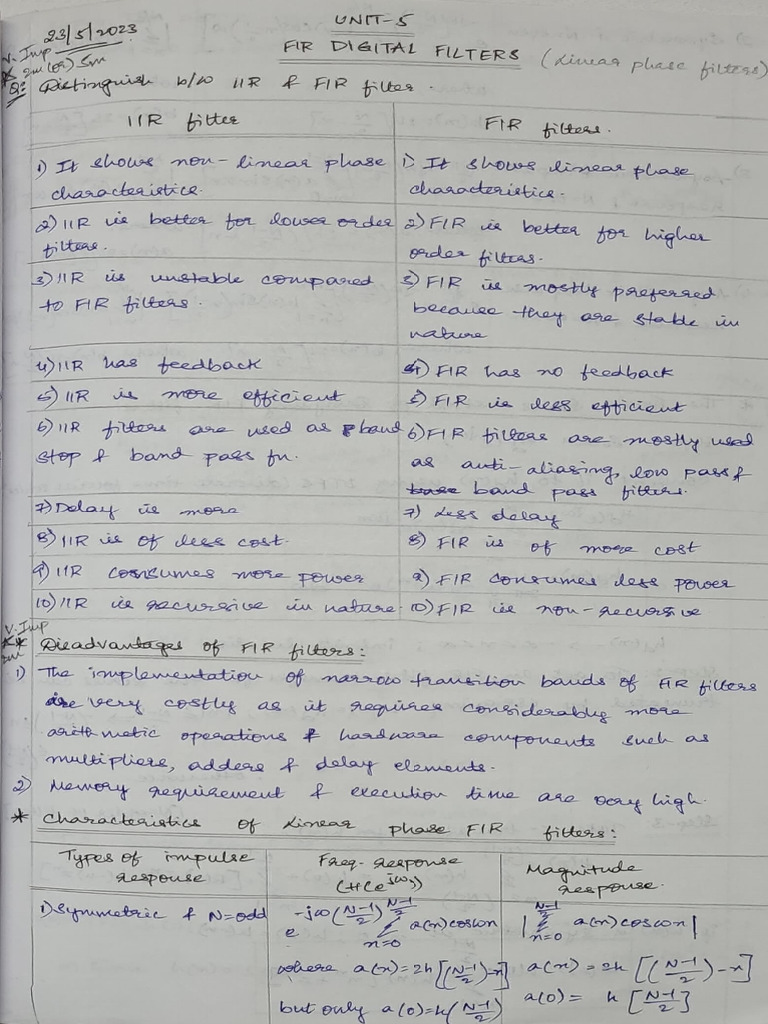 23/5/2023
UNIT-5
FIR DIGITAL FILTERS (Linear phase filters)
V. Imp
* 2m (or) 5m
Q: Distinguish b/w IIR & FIR filter.
IIR filter
FIR filters.
1) It shows non-linear phase
characteristics.
1) It shows linear phase
characteristics.
2) IIR is better for lower order
filters.
2) FIR is better for higher
order filters.
3) IIR is unstable compared
to FIR filters.
3) FIR is mostly preferred
because they are stable in
nature
4) IIR has feedback
4) FIR has no feedback
5) IIR is more efficient
5) FIR is less efficient
6) IIR filters are used as band
stop & band pass fn.
6) FIR filters are mostly used
as anti-aliasing, low pass &
band pass filters.
7) Delay is more
7) Less delay
8) IIR is of less cost.
8) FIR is of more cost
9) IIR consumes more power
9) FIR consumes less power
10) IIR is recursive in nature
10) FIR is non-recursive
V. Imp
** 2m
Disadvantages of FIR filters:
1) The implementation of narrow transition bands of FIR filters
are very costly as it requires considerably more
arithmetic operations & hardware components such as
multipliers, adders & delay elements.
2) Memory requirement & execution time are very high.
* Characteristics of Linear phase FIR filters:
Types of impulse
response
Freq. Response
(H(e^jω))
Magnitude
response.
1) Symmetric & N=odd
e^-jω(N-1/2) Σ_{n=0}^{N-1/2} a(n)cosωn
|Σ_{n=0}^{N-1/2} a(n)cosωn|
where a(n)=2h[(N-1/2)-n]
a(n)=2h[(N-1/2)-n]
but only a(0)=h(N-1/2)
a(0)= h[N-1/2]